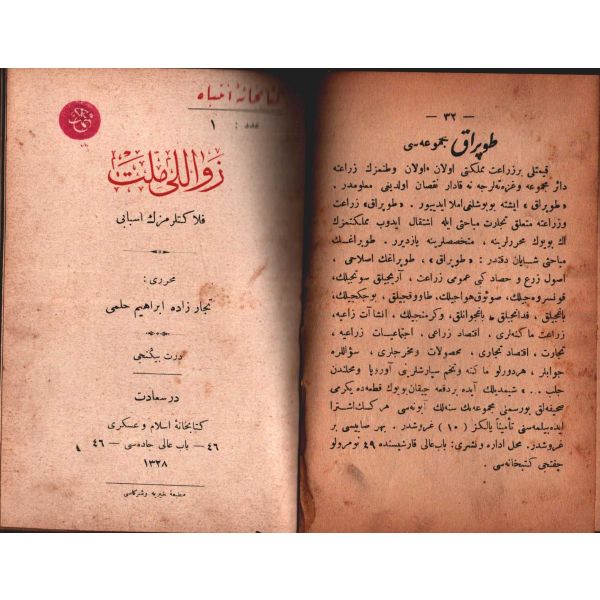 كتابخانهٔ انتباه
عدد : ١
زواللی ملت
فلاكتلرمزك اسبابی
محرری :
تجار زاده ابراهیم حلمی
درت بیكنجی
در سعادت
كتابخانهٔ اسلام و عسكری
٤٦— باب عالی جاده سی — ٤٦
١٣٢٨
مطبعهٔ خیریه وشركاسی
— ٣٢ —
طوپراق مجموعه سی
قیمتلی برزراعت مملكتی اولان وطنمزك زراعته
دائر مجموعه وغزته لرجه نه قادار نقصان اولدیغی معلومدر .
«طوپراق» ایشته بوبوشلغی املا ایدییور . «طوپراق» زراعت
وزراعته متعلق تجارت مباحثی ایله اشتغال ایدوب مملكتمزك
اك بویوك محررلرینه ، متخصصلرینه یازدیرر . طوپراغك
مباحثی شایان دقتدر : «طوپراق» ، طوپراغك اصلاحی ،
اصول زرع و حصاد كبی عمومی زراعت ، آریجیلق سوتجیلك،
قونسروه جیلك، صوثوق هواجیلك، طاووقجیلق ، بوجكجیلك،
باغجیلق ، فدانجیلق ، باغچوانلق ، وكرمنجیلك ، انشاآت زراعیه،
زراعت ماكنه لری ، اقتصاد زراعی ، اجتماعیات زراعیه ،
تجارت ، اقتصاد تجاری ، محصولات ومخرجلری ، سؤاللره
جوابلر ، هردورلو ماكنه وتخم سپارشلرینی آوروپا ومحلندن
جلب ... » شیمدیلك آیده بردفعه چیقان بویوك قطعه ده یكرمی
صحیفه لق بورسمی مجموعه نك سنه لك آبونه سی هر كسك اشترا
ایده بیلمه سنی تأمیناً یالكز (١٠) غروشدر . بهر صاییسی بر
غروشدر. محل اداره ونشری: باب عالی قارشیسنده ٤٩ نومرولو
چفتجی كتبخانه سی .